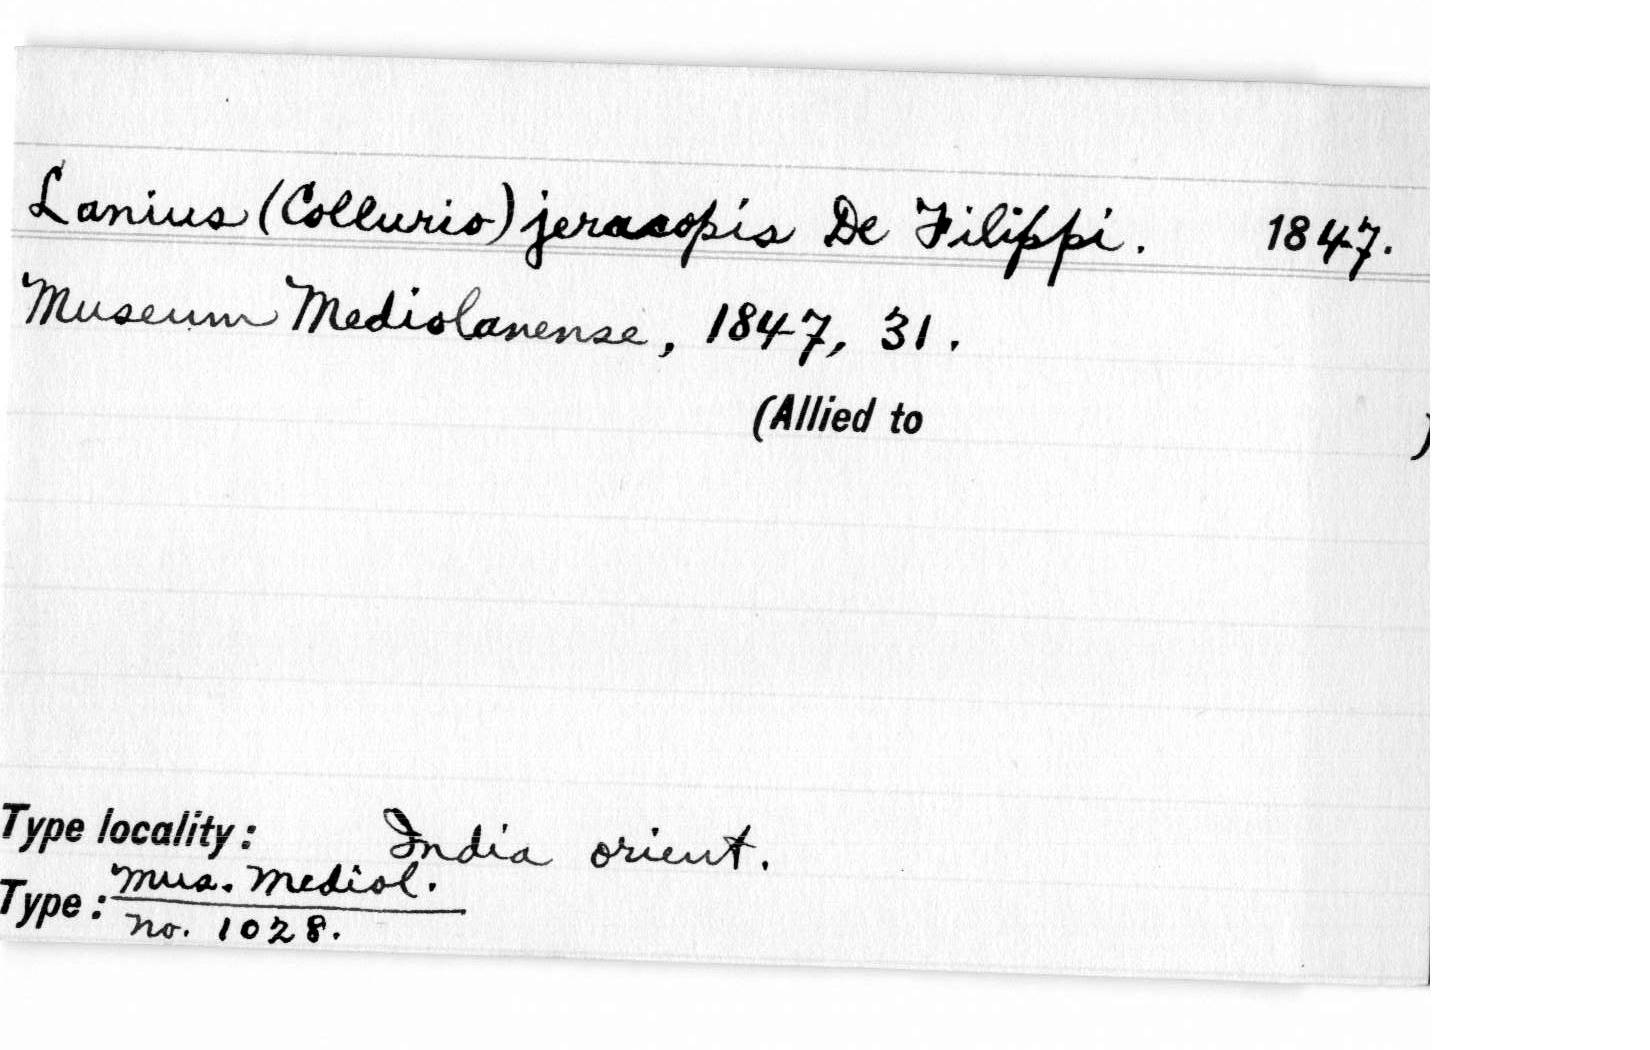 Lanius (Collurio) jeracopis De Filippi. 1847.
Museum Mediolanense, 1847, 31.
(Allied to )
Type locality: India orient.
Type: Mus. Mediol.
No. 1028.